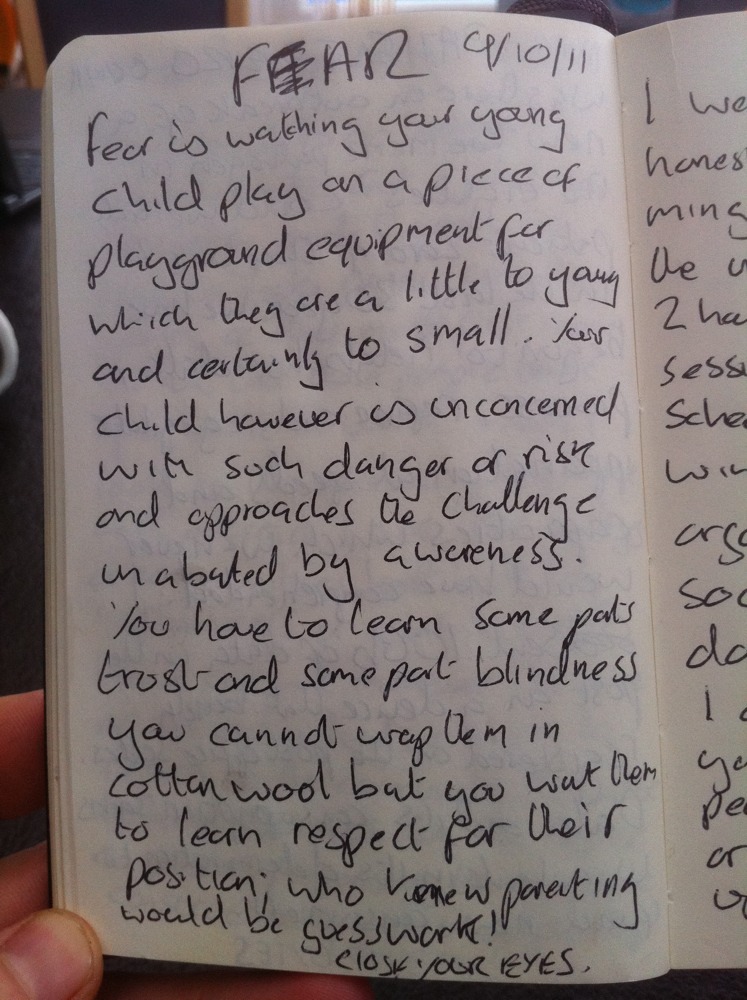 FEAR 4/10/11
Fear is watching your young
child play on a piece of
playground equipment for
which they are a little to young
and certainly to small. Your
child however is unconcerned
with such danger or risk
and approaches the challenge
unabated by awareness.
You have to learn some parts
trust and some part blindness
you cannot wrap them in
cotton wool but you want them
to learn respect for their
position; who knew parenting
would be guesswork!
CLOSE YOUR EYES.
I we
hones
ming
the
2 ha
sess
sche
win
arg
soc
do
I
yo
pe
or